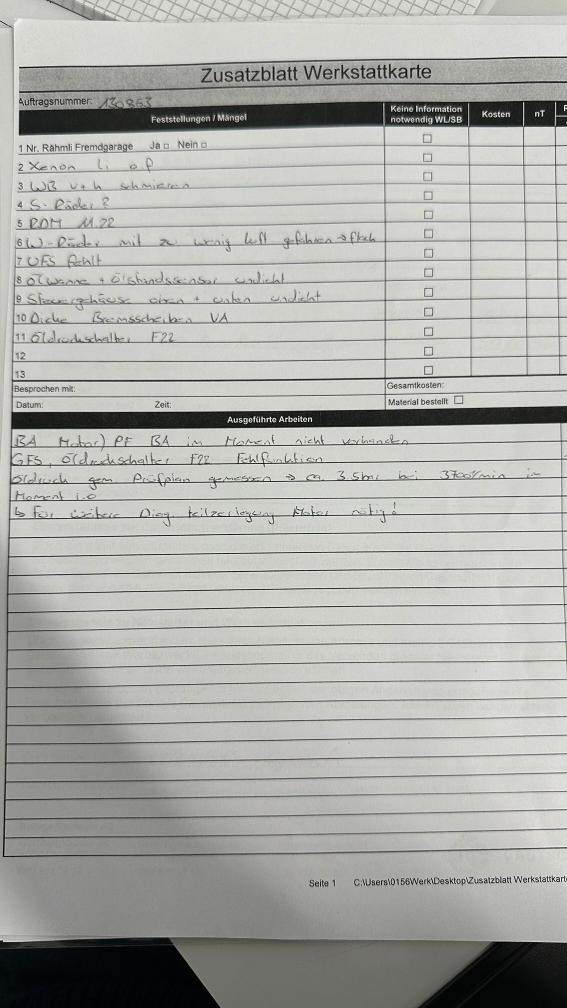 Zusatzblatt Werkstattkarte
Auftragsnummer: 130853
Feststellungen / Mängel
Keine Information notwendig WL/SB
Kosten
nT
1 Nr. Rähmli Fremdgarage Ja □ Nein □
2 Xenon li
3 WB v+h schmieren
4 S-Räder ?
5 RDM 11.22
6 W-Räder mit zu wenig luft gefahren → flach
7 UFS fehlt
8 Ölwanne + Ölstandssensor undicht
9 Steuergehäuse oben + unten undicht
10 Dicke Bremsscheiben VA
11 Öldruckschalter F22
12
13
Besprochen mit:
Gesamtkosten:
Datum: Zeit:
Material bestellt □
Ausgeführte Arbeiten
BA Motor) PF BA im Moment nicht vorhanden
GFS, Öldruckschalter F22 Fehlfunktion
Öldruck gem Prüfplan gemessen → ca. 3.5bar bei 3700/min im
Moment i.o
↳ für weitere Diag teilzerlegung Motor nötig!
Seite 1 C:\Users\0156Werk\Desktop\Zusatzblatt Werkstattkart